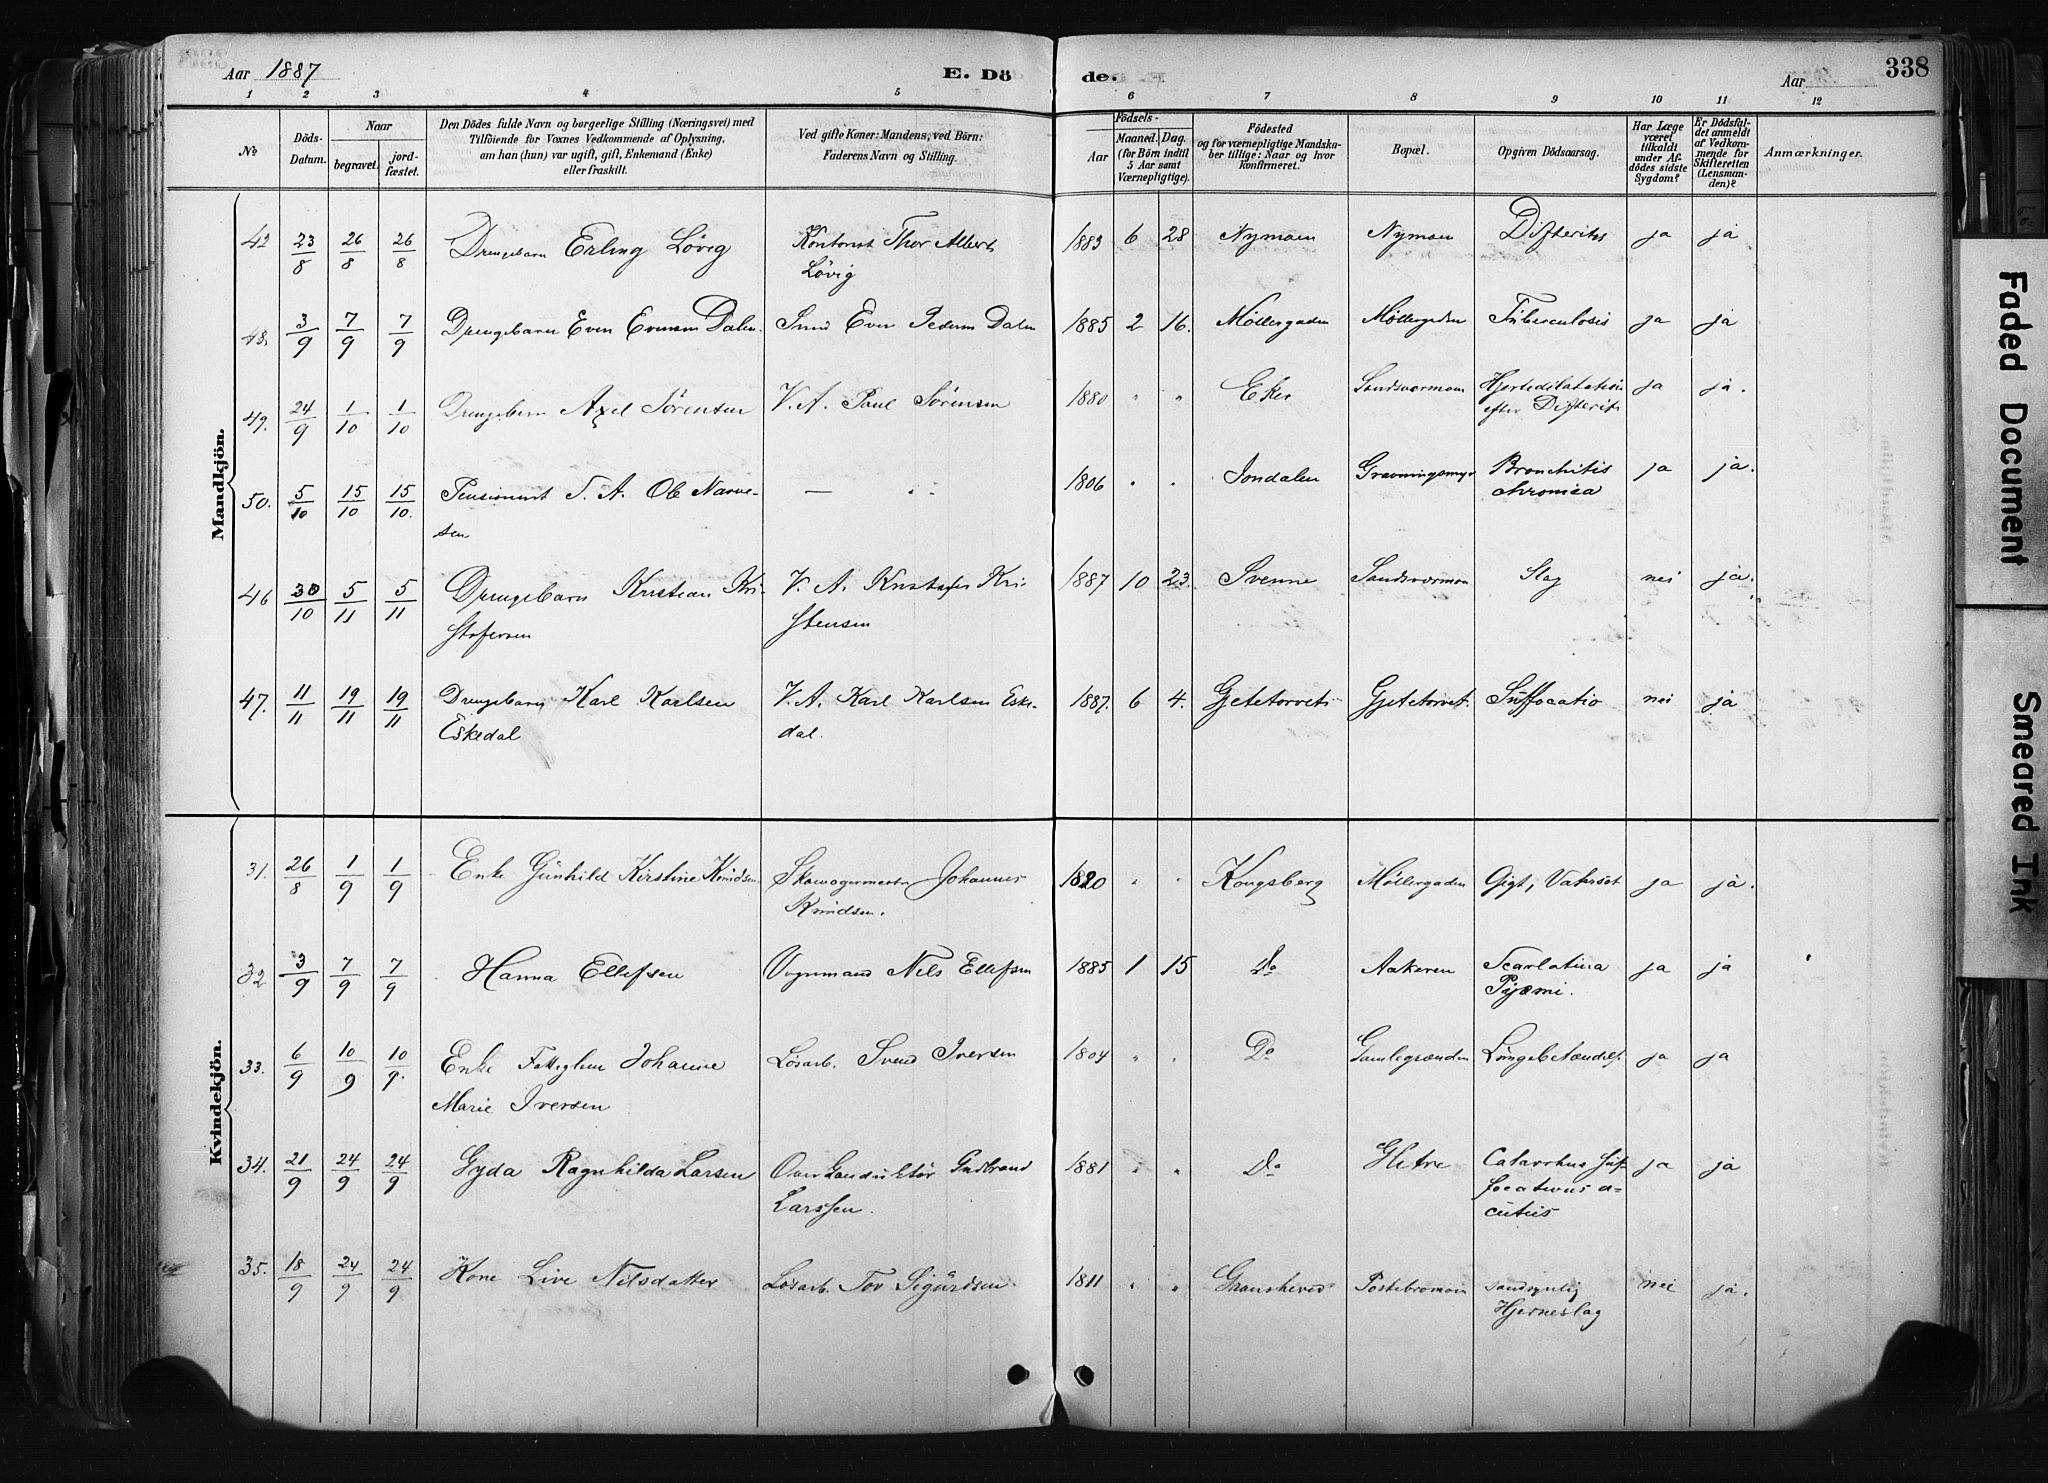 Aar 1887 E. Döde. Aar 338
1 2 3 4 5 6 7 8 9 10 11 12
No Döds-Datum. Naar begravet. jordfæstet. Den Dödes fulde Navn og borgerlige Stilling (Næringsvei) med Tilföiende för Voxnes Vedkommende af Oplysning, om han (hun) var ugift, gift, Enkemand (Enke) eller fraskilt. Ved gifte Koner: Mandens, ved Börn: Faderens Navn og Stilling. Födsels- Aar Maaned. Dag. (for Börn indtil 5 Aar samt Værnepligtige). Födested og for værnepligtige Mandskaber tillige: Naar og hvor konfirmeret. Bopæl. Opgiven Dödsaarsag. Har Læge været tilkaldt under Afdödes sidste Sygdom? Er Dödsfaldet anmeldt af Vedkommende for Skifteretten (Lensmanden)? Anmærkninger.
Mandkjön.
23/8 26/8 26/8 Drengebarn Erling Lövig Kontorist Thor Albert 1883 6 28 Nymoen Nymoen Difteritis ja ja
Lövig
48. 3/9 7/9 7/9 Drengebarn Even Evensen Dalen. Smed Even Pedersen Dalen 1885 2 16. Möllergaden Möllergaden Tuberculosis ja ja
49. 24/9 1/10 1/10 Drengebarn Axel Sörensen V. A. Paul Sörensen 1880 " " Eker Sandsværmoen Hjertedilatation ja ja.
efter Difterits
50. 5/10 15/10 15/10. Pensionist T. A. Ole Narve- — " 1806 " " Jondalen Gravningsmyr Bronchitis ja ja.
sen chronica
46 30/10 5/11 5/11 Drengebarn Kristian Kri- V. A. Kristofer Kri- 1887 10 23. Svenne Sandsværmoen Slag nei ja.
stofersen stensen
47. 11/11 19/11 19/11 Drengebarn Karl Karlsen V. A. Karl Karlsen Eske- 1887. 6 4. Gjetetorvet Gjetetorvet. Suffocatio nei ja
Eskedal dal.
Kvindekjön.
31. 26/8 1/9 1/9 Enke Gunhild Kirstine Knudsen Skomagermester Johannes 1820 " " Kongsberg Möllergaden Gigt, Vatersot ja ja.
Knudsen.
32 3/9 7/9 7/9 Hanna Ellefsen Vognmand Nils Ellefsen 1885 1 15 Do Aakeren Scarlatina ja ja
Pyæmi.
33. 6/9 10/9 10/9. Enke Fattiglem Johanne Lösarb. Svend Iversen 1804 " " Do Gamlegrænden Lungebetændelse ja ja
Marie Iversen
34. 21/9 24/9 24/9 Gyda Ragnhilda Larsen Overkonduktör Gudbrand 1881 " " Do Glitre Catarrhus suf- ja ja
Larssen. focativus a-
cutus
35. 18/9 24/9 24/9 Kone Live Nilsdatter Lösarb. Tov Sigurdsen 1811 " " Gransherad Postebromoen sandsynlig nei ja.
Hjerneslag
Faded Document
Smeared Ink